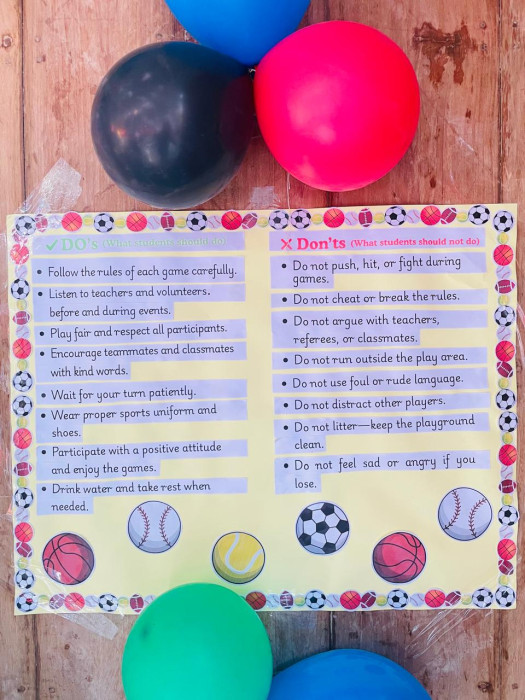 ✓ DO's (What students should do)
• Follow the rules of each game carefully.
• Listen to teachers and volunteers.
before and during events.
• Play fair and respect all participants.
• Encourage teammates and classmates
with kind words.
• Wait for your turn patiently.
• Wear proper sports uniform and
shoes.
• Participate with a positive attitude
and enjoy the games.
• Drink water and take rest when
needed.
✕ Don'ts (What students should not do)
• Do not push, hit, or fight during
games.
• Do not cheat or break the rules.
• Do not argue with teachers,
referees, or classmates.
• Do not run outside the play area.
• Do not use foul or rude language.
• Do not distract other players.
• Do not litter—keep the playground
clean.
• Do not feel sad or angry if you
lose.